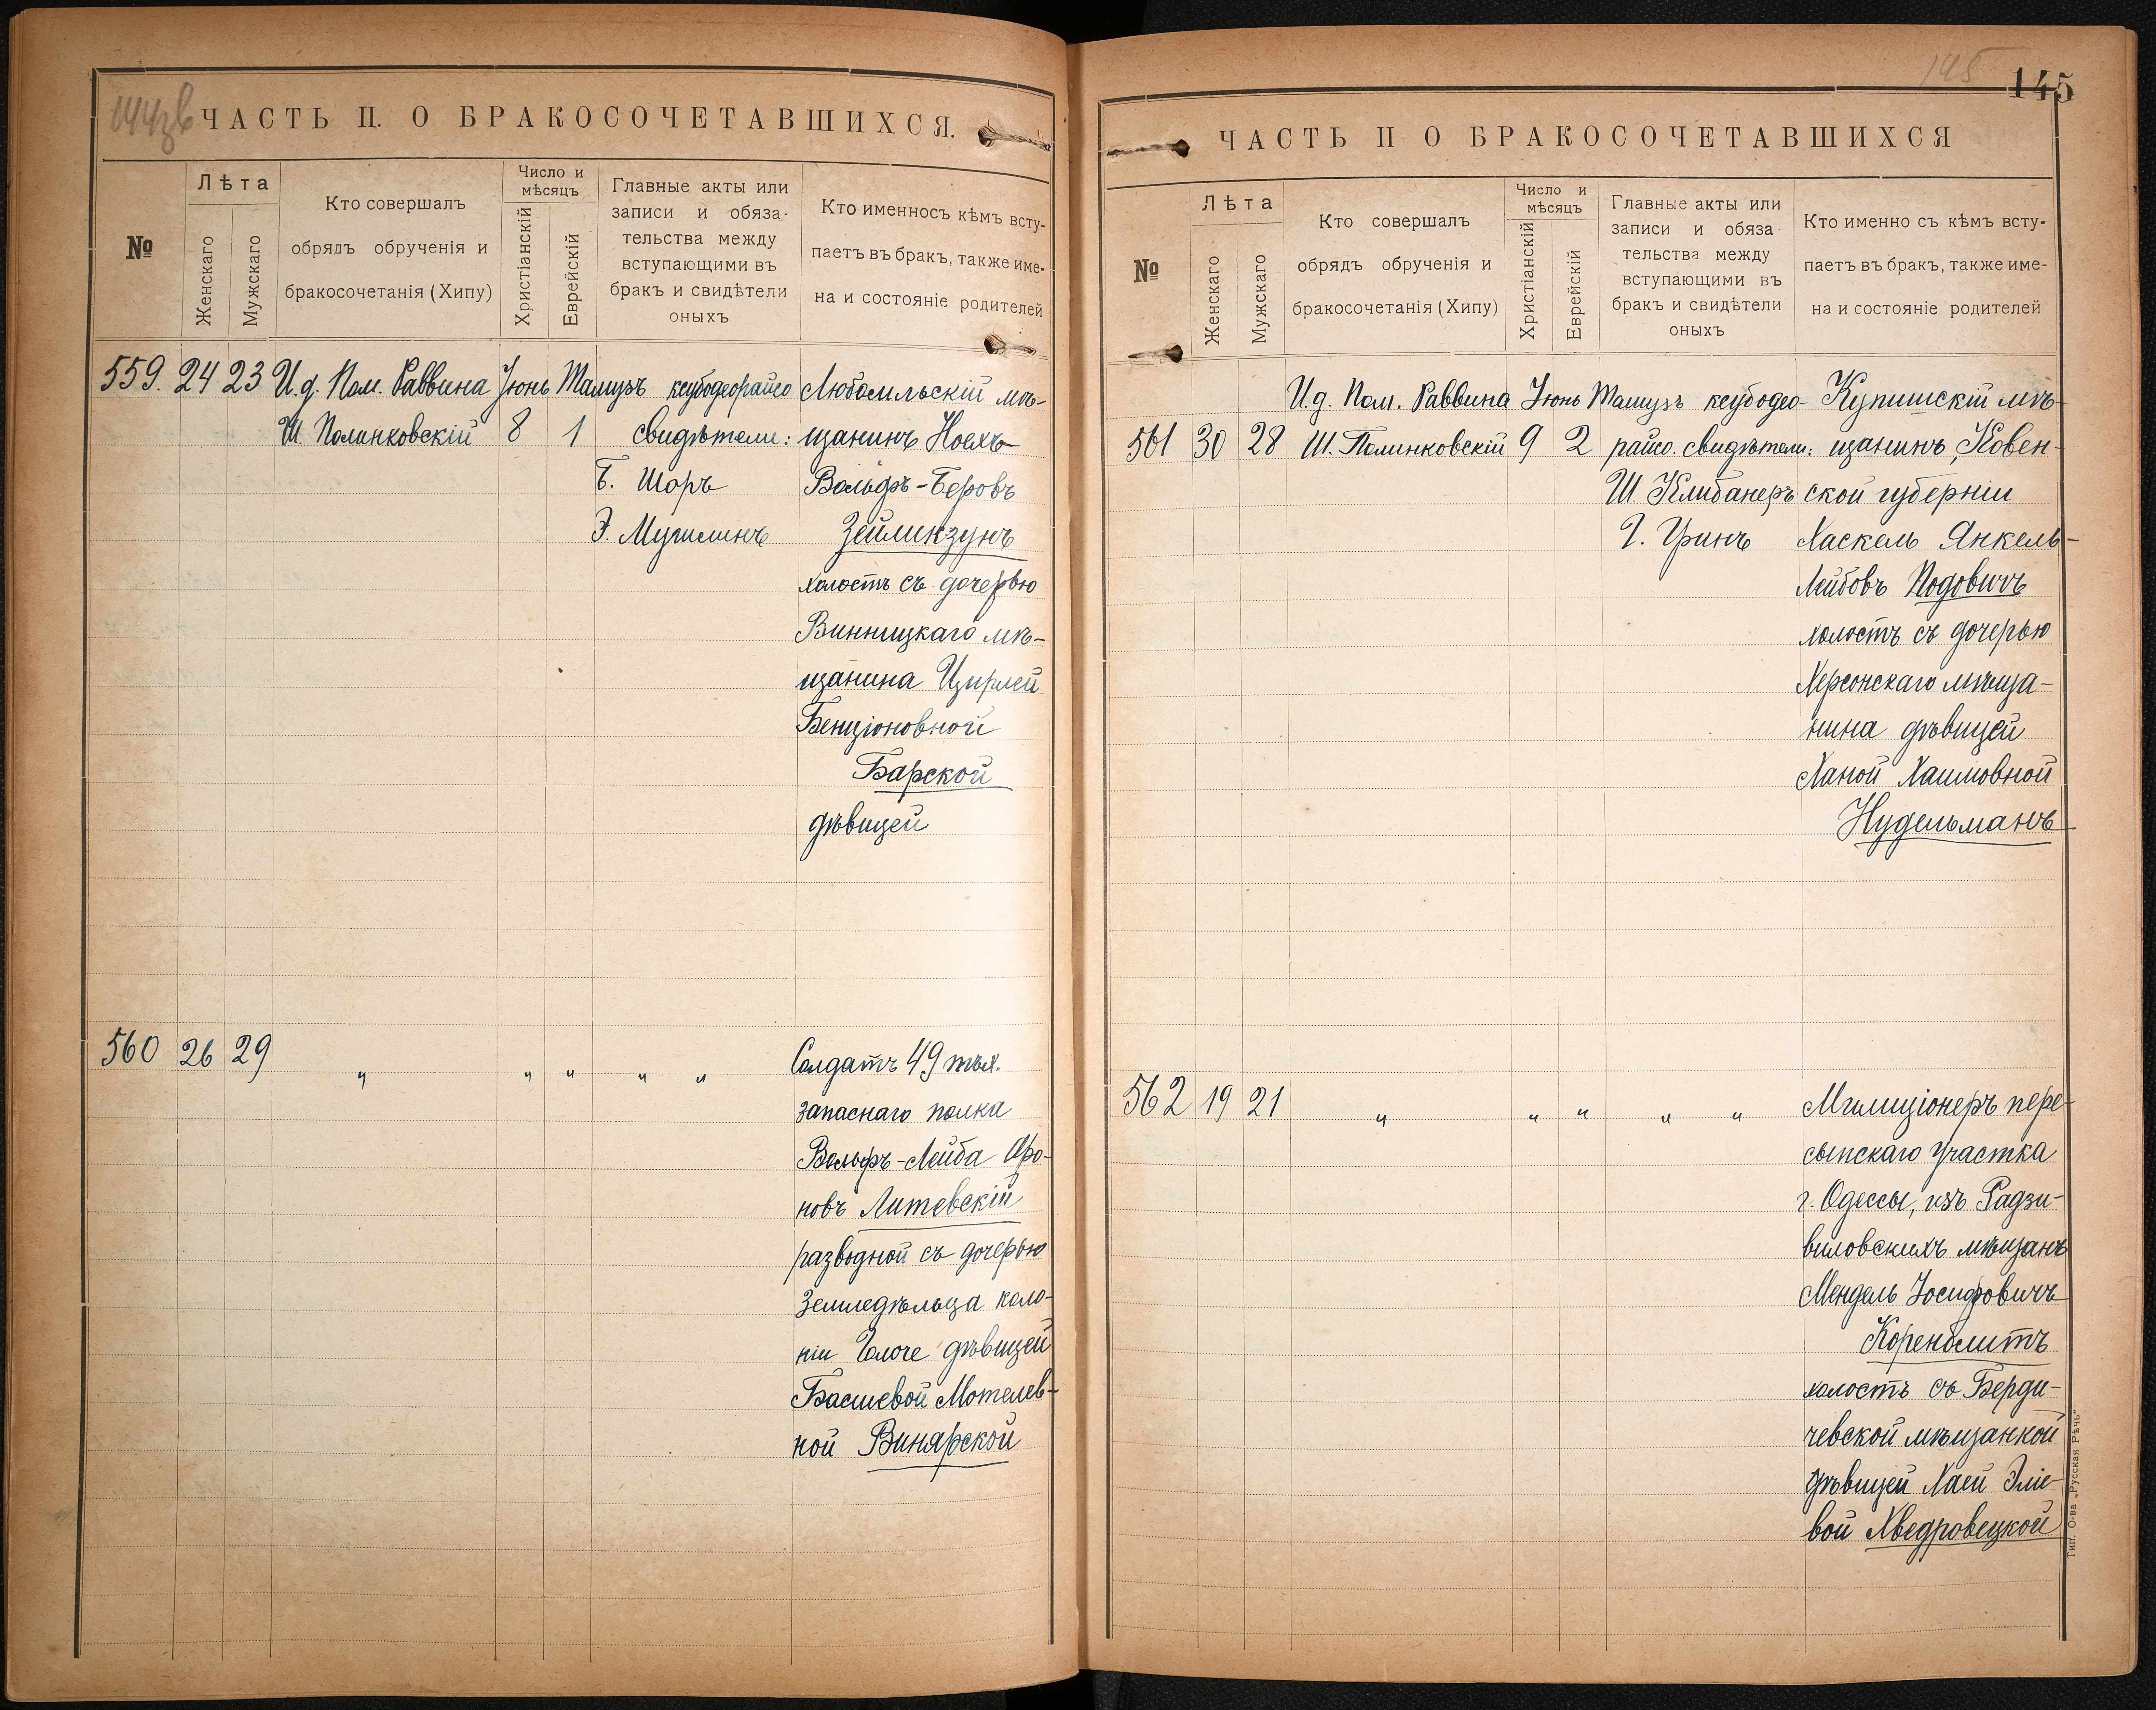 ЧАСТЬ II. О БРАКОСОЧЕТАВШИХСЯ.
№
Лѣта
Женскаго
Мужскаго
Кто совершалъ
обрядъ обрученія и
бракосочетанія (Хипу)
Число и
мѣсяцъ
Христіанскій
Еврейскій
Главные акты или
записи и обяза-
тельства между
вступающими въ
бракъ и свидѣтели
оныхъ
Кто именносъ кѣмъ всту-
паетъ въ бракъ, также име-
на и состояніе родителей
559. 24 23 И.д. Пом. Раввина Іюнь Тамузъ ксубодеорайсо Любомльскій мѣ-
Ш. Полинковскій 8 1 свидѣтели: щанинъ Ноехъ
Б. Шоръ Вольфъ-Беровъ
Э. Мучилинъ Зейликзунъ
холостъ съ дочерью
Винницкаго мѣ-
щанина Цирлей
Бенціоновной
Барской
дѣвицей
560 26 29 " " " " " Солдатъ 49 пѣх.
запаснаго полка
Вольфъ-Лейба Аро-
новъ Литевскій
разводной съ дочерью
Земледѣльца коло-
ніи дѣвицей
Басшевой Мотелев-
ной Винярской
145
145
ЧАСТЬ II О БРАКОСОЧЕТАВШИХСЯ
№
Лѣта
Женскаго
Мужскаго
Кто совершалъ
обрядъ обрученія и
бракосочетанія (Хипу)
Число и
мѣсяцъ
Христіанскій
Еврейскій
Главные акты или
записи и обяза
тельства между
вступающими въ
бракъ и свидѣтели
оныхъ
Кто именно съ кѣмъ всту-
паетъ въ бракъ, также име-
на и состояніе родителей
И.д. Пом. Раввина Іюнь Тамузъ ксубодео- Купишскій мѣ-
561 30 28 Ш. Полинковскій 9 2 райсо. свидѣтели: щанинъ, Ковен-
Ш. Клибанеръ ской губерніи
Г. Гринъ Хаскель Янкель-
Лейбовъ Подовичъ
холостъ съ дочерью
Херсонскаго мѣща-
нина дѣвицей
Ханой Хаимовной
Нудельманъ
562 19 21 " " " " " Милиціонеръ пере-
сыпскаго участка
г. Одессы, изъ Радзи-
виловскихъ мѣщанъ
Мендель Іосифовичъ
Коренблитъ
холостъ съ Берди-
чевской мѣщанкой
дѣвицей Хаей Эліе-
вой Хведровецкой
Тип. О-ва „Русская Рѣчь"